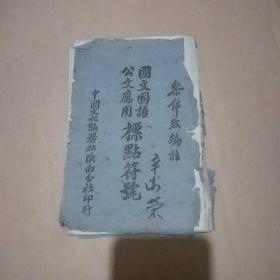 秦傑熙編註
國文國語
公文應用
標點符號
辛尚榮
中國文化服務社陝西分社印行